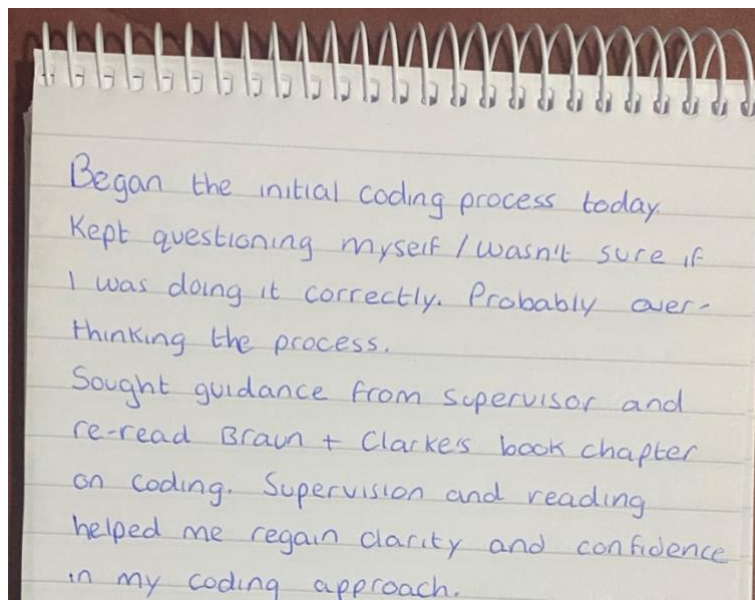 Began the initial coding process today.
Kept questioning myself / wasn't sure if
I was doing it correctly. Probably over-
thinking the process.
Sought guidance from supervisor and
re-read Braun + Clarke's book chapter
on coding. Supervision and reading
helped me regain clarity and confidence
in my coding approach.